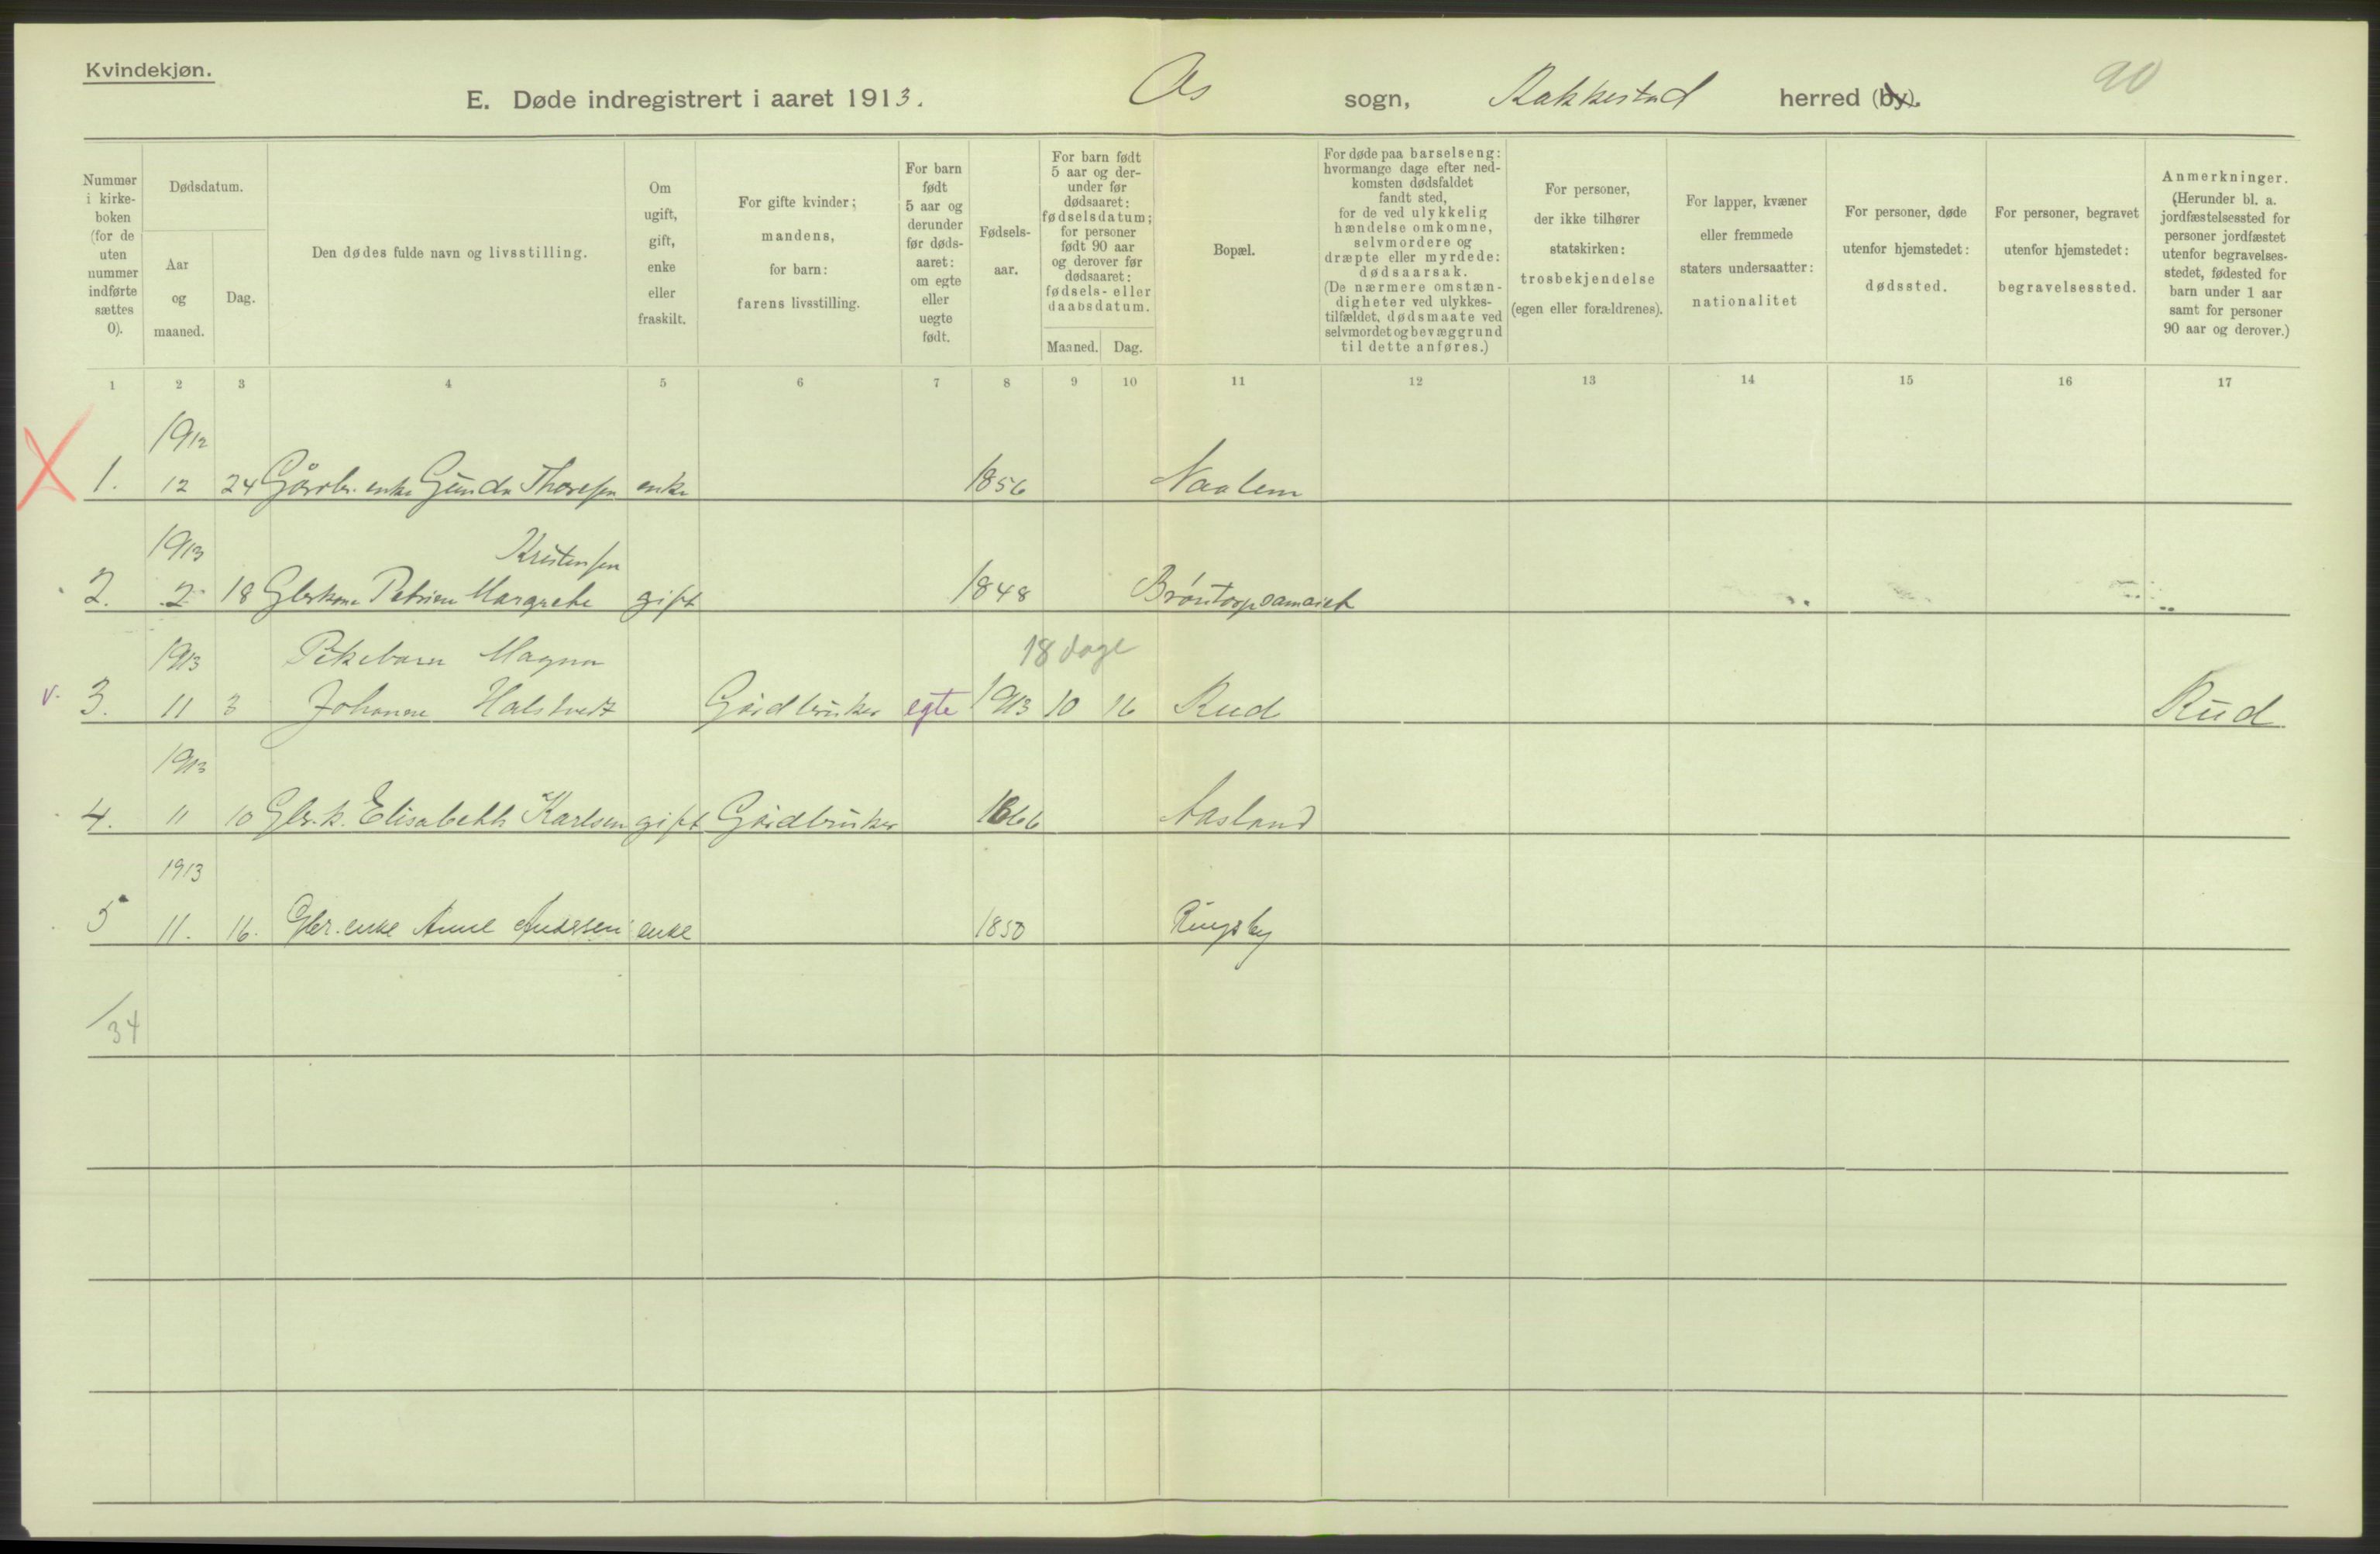 Kvindekjøn.
E. Døde indregistrert i aaret 1913. Os sogn, Rakkestad herred (by).
90
Nummer i kirkeboken (for de uten nummer indførte sættes 0).
Dødsdatum.
Aar og maaned.
Dag.
Den dødes fulde navn og livsstilling.
Om ugift, gift, enke eller fraskilt.
For gifte kvinder; mandens, for barn: farens livsstilling.
For barn født 5 aar og derunder før dødsaaret: om egte eller uegte født.
Fødselsaar.
For barn født 5 aar og derunder før dødsaaret: fødselsdatum; for personer født 90 aar og derover før dødsaaret: fødsels- eller daabsdatum.
Maaned.
Dag.
Bopæl.
For døde paa barselseng: hvormange dage efter nedkomsten dødsfaldet fandt sted, for de ved ulykkelig hændelse omkomne, selvmordere og dræpte eller myrdede: dødsaarsak. (De nærmere omstændigheter ved ulykkestilfældet, dødsmaate ved selvmordet og bevæggrund til dette anføres.)
For personer, der ikke tilhører statskirken: trosbekjendelse (egen eller forældrenes).
For lapper, kvæner eller fremmede staters undersaatter: nationalitet
For personer, døde utenfor hjemstedet: dødssted.
For personer, begravet utenfor hjemstedet: begravelsessted.
Anmerkninger. (Herunder bl. a. jordfæstelsessted for personer jordfæstet utenfor begravelsesstedet, fødested for barn under 1 aar samt for personer 90 aar og derover.)
1 2 3 4 5 6 7 8 9 10 11 12 13 14 15 16 17
1912
1. 12 24 Gårdbr. enke Gunda Thoresen enke 1856 Naalem
1913 Kristensen
2. 2 18 Gbrkone Petrine Margrete gift 1848
1913 Pikebarn Magna 18 dage
v. 3. 11 3 Johanne Halstvedt Gårdbruker egte 1913 10 16 Rud Rud
1913
4. 11 10 Gbr.k. Elisabeth Karlsen gift Gårdbruker 1866 Aasland
1913
5 11. 16. Gbr. enke Anne Andersen enke 1850 Ringsby
/34